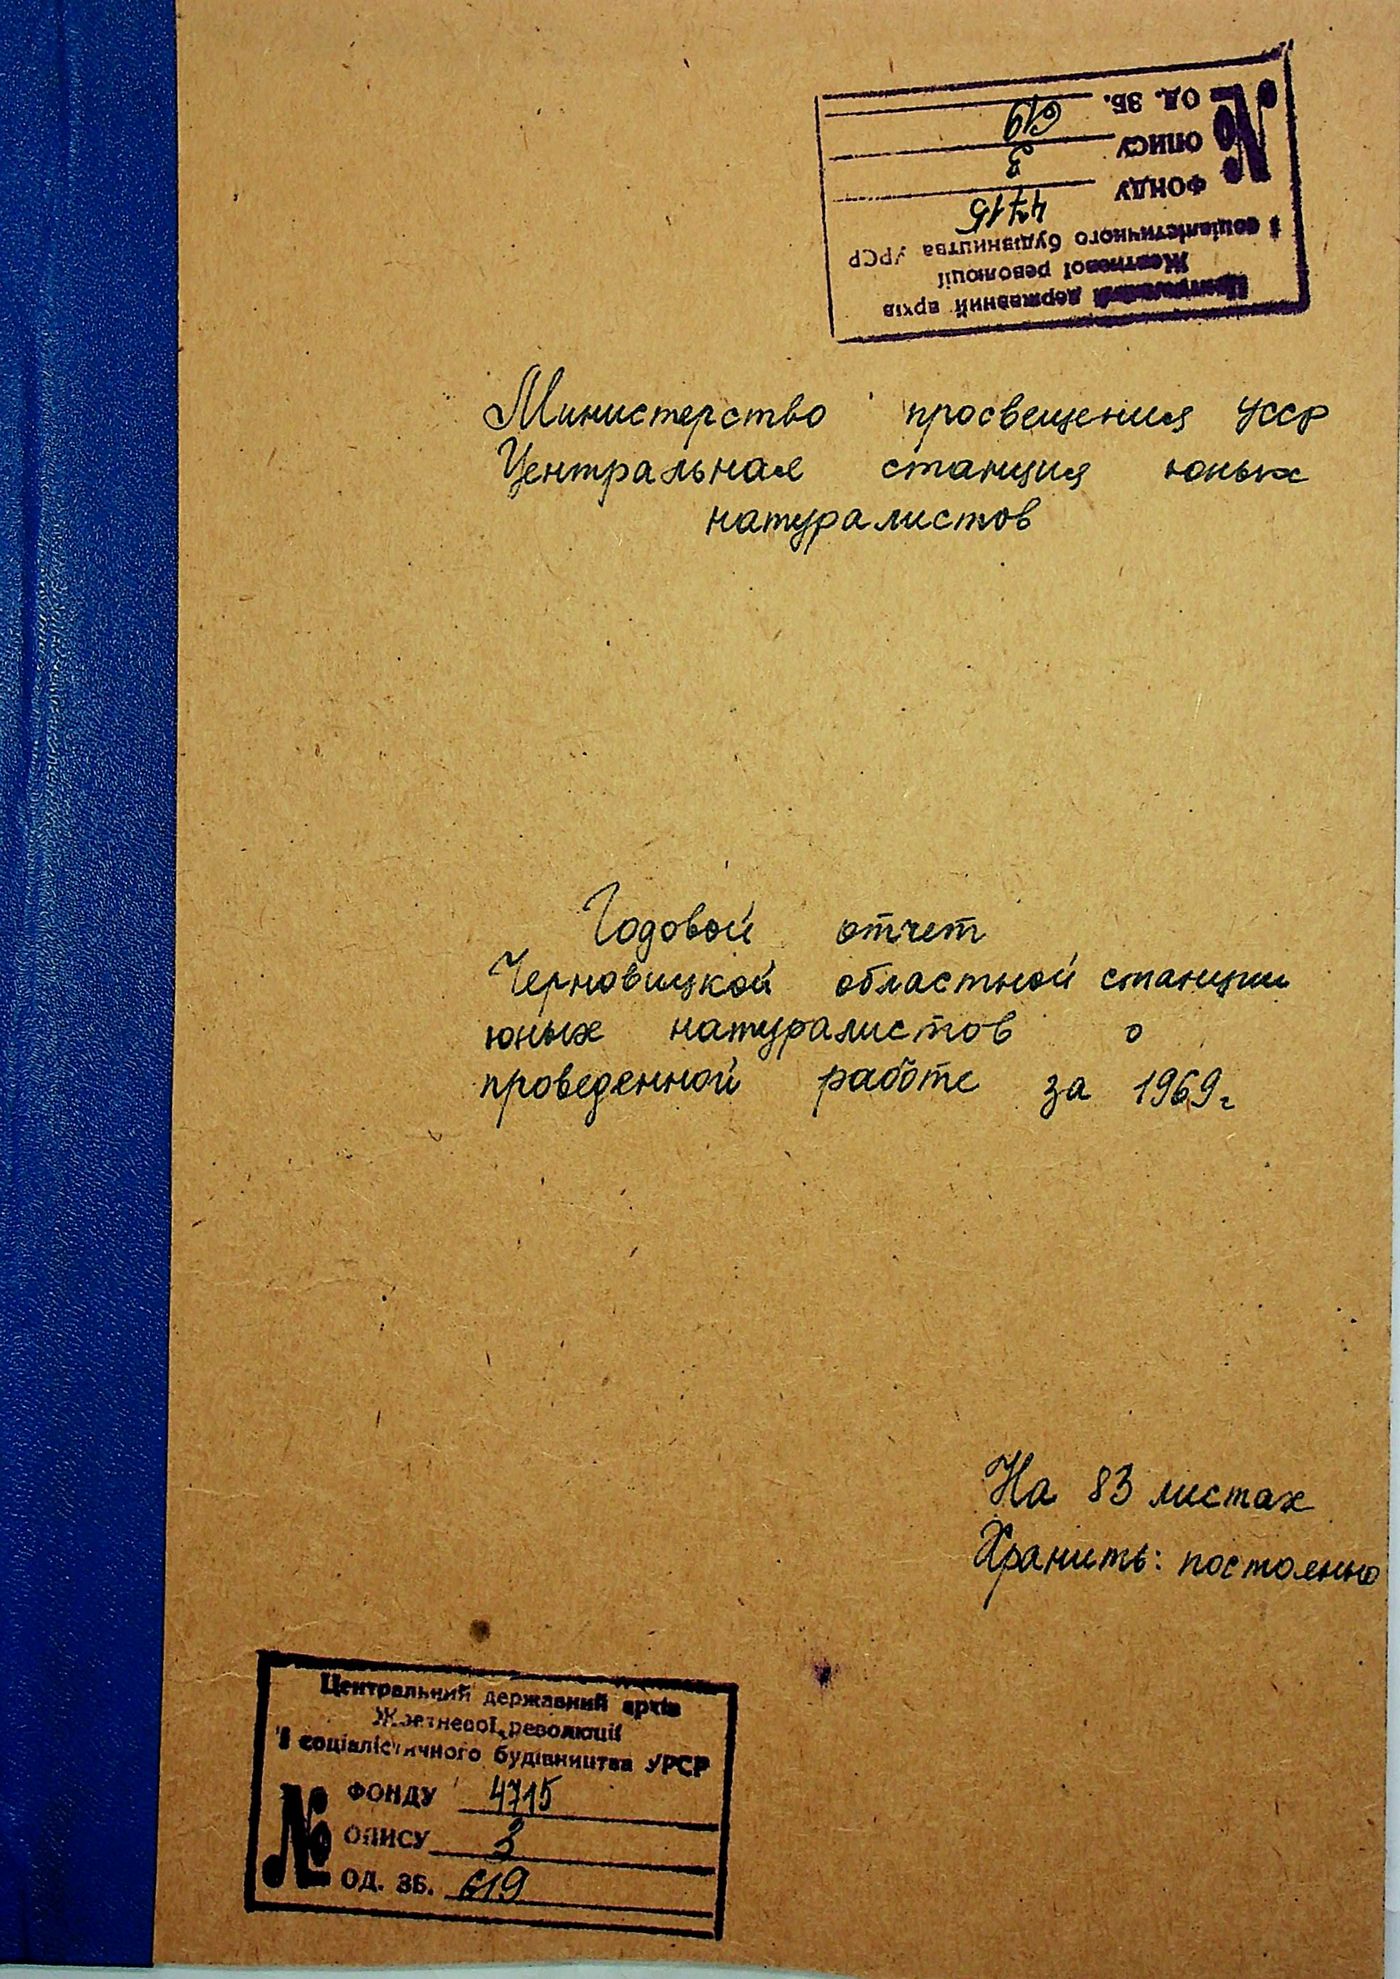 Центральний державний архів
Жовтневої революції
і соціалістичного будівництва УРСР
№
ФОНДУ 4715
ОПИСУ 3
ОД. ЗБ. 619
Министерство просвещения УССР
Центральная станция юных
натуралистов
Годовой отчет
Черновицкой областной станции
юных натуралистов о
проведенной работе за 1969г
На 83 листах
Хранить: постоянно
Центральний державний архів
Жовтневої революції
і соціалістичного будівництва УРСР
№
ФОНДУ 4715
ОПИСУ 3
ОД. ЗБ. 619